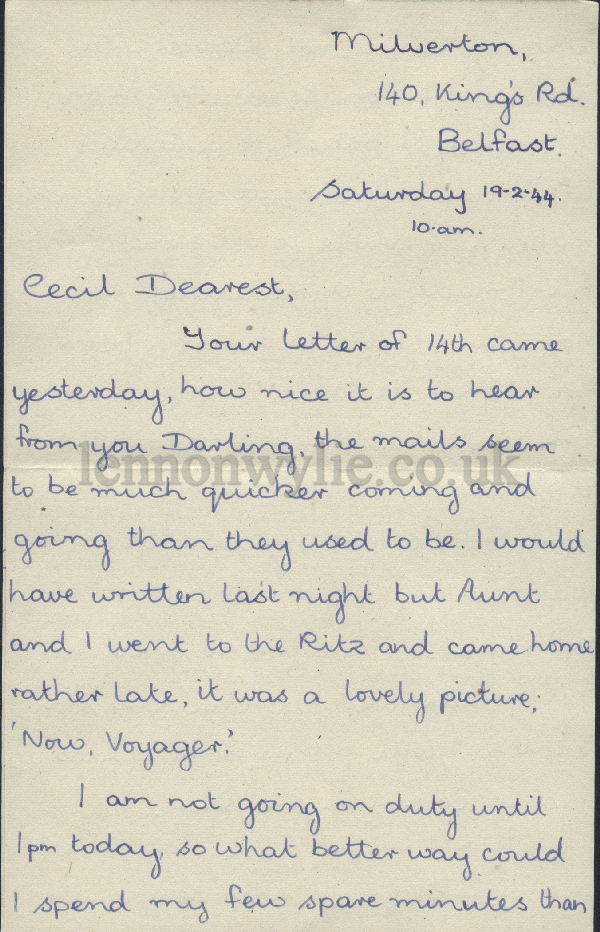 Milverton,
140, King's Rd.
Belfast.
Saturday 19-2-44.
10.am.
Cecil Dearest,
Your letter of 14th came
yesterday, how nice it is to hear
from you Darling, the mails seem
lennonwylie.co.uk
to be much quicker coming and
going than they used to be. I would
have written last night but Aunt
and I went to the Ritz and came home
rather late, it was a lovely picture,
'Now, Voyager.'
I am not going on duty until
1pm today, so what better way could
I spend my few spare minutes than